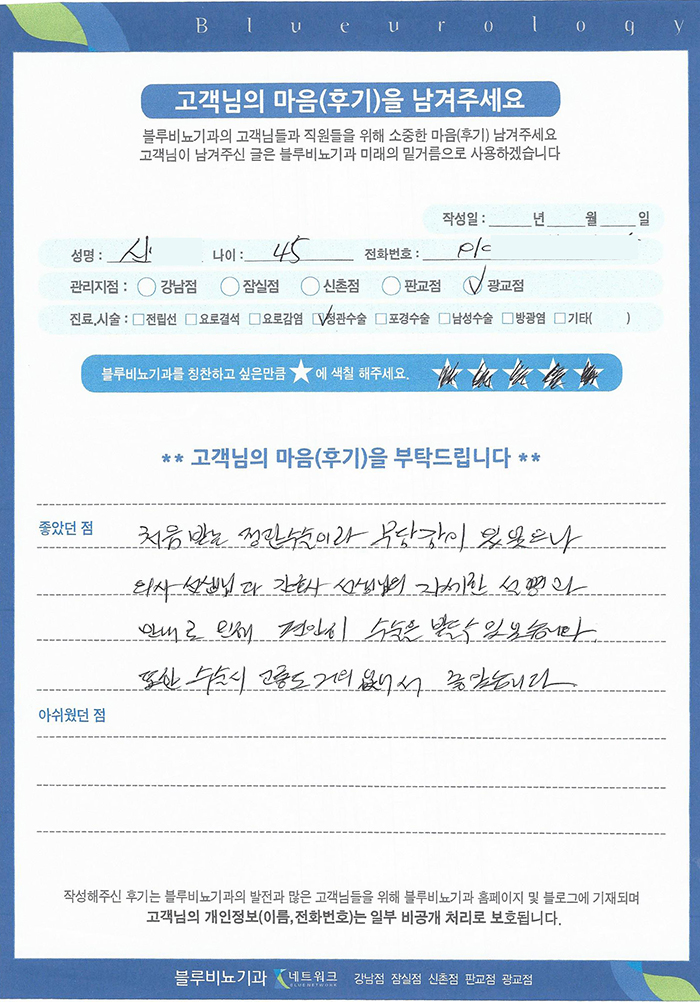 Blueurology
고객님의 마음(후기)을 남겨주세요
블루비뇨기과의 고객님들과 직원들을 위해 소중한 마음(후기) 남겨주세요
고객님이 남겨주신 글은 블루비뇨기과 미래의 밑거름으로 사용하겠습니다
작성일 : 년 월 일
성명 : 신 나이 : 45 전화번호 : 01
관리지점 : 강남점 잠실점 신촌점 판교점 광교점
진료,시술 : 전립선 요로결석 요로감염 정관수술 포경수술 남성수술 방광염 기타( )
블루비뇨기과를 칭찬하고 싶은만큼 ★에 색칠 해주세요.
** 고객님의 마음(후기)을 부탁드립니다 **
좋았던 점 처음 받는 정관수술이라 부담감이 있었으나
의사 선생님과 간호사 선생님의 자세한 설명과
안내로 인해 편안히 수술을 받을수 있었습니다.
또한 수술시 고통도 거의 없어서 좋았습니다
아쉬웠던 점
작성해주신 후기는 블루비뇨기과의 발전과 많은 고객님들을 위해 블루비뇨기과 홈페이지 및 블로그에 기재되며
고객님의 개인정보(이름,전화번호)는 일부 비공개 처리로 보호됩니다.
블루비뇨기과 네트워크 BLUE NETWORK 강남점 잠실점 신촌점 판교점 광교점